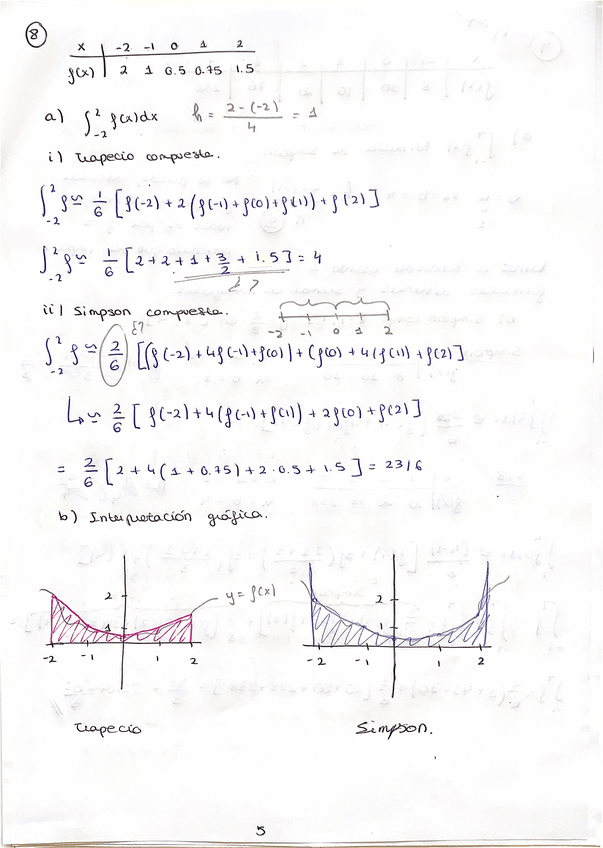 8
x | -2 -1 0 1 2
f(x) | 2 1 0.5 0.75 1.5
a) ∫_{-2}^{2} f(x)dx h = \frac{2-(-2)}{4} = 1
i) Trapecio compuesta.
∫_{-2}^{2} f ≈ \frac{1}{6} [f(-2) + 2(f(-1) + f(0) + f(1)) + f(2)]
∫_{-2}^{2} f ≈ \frac{1}{6} [2 + 2 + 1 + \frac{3}{2} + 1.5] = 4
¿?
ii) Simpson compuesta.
-2 -1 0 1 2
¿?
∫_{-2}^{2} f ≈ \frac{2}{6} [(f(-2) + 4f(-1) + f(0)) + (f(0) + 4(f(1)) + f(2)]
↳ ≈ \frac{2}{6} [f(-2) + 4(f(-1) + f(1)) + 2f(0) + f(2)]
= \frac{2}{6} [2 + 4(1 + 0.75) + 2·0.5 + 1.5] = 23/6
b) Interpretación gráfica.
2 1 -2 -1 1 2
y = f(x)
2 1 -2 -1 1 2
Trapecio
Simpson.
5